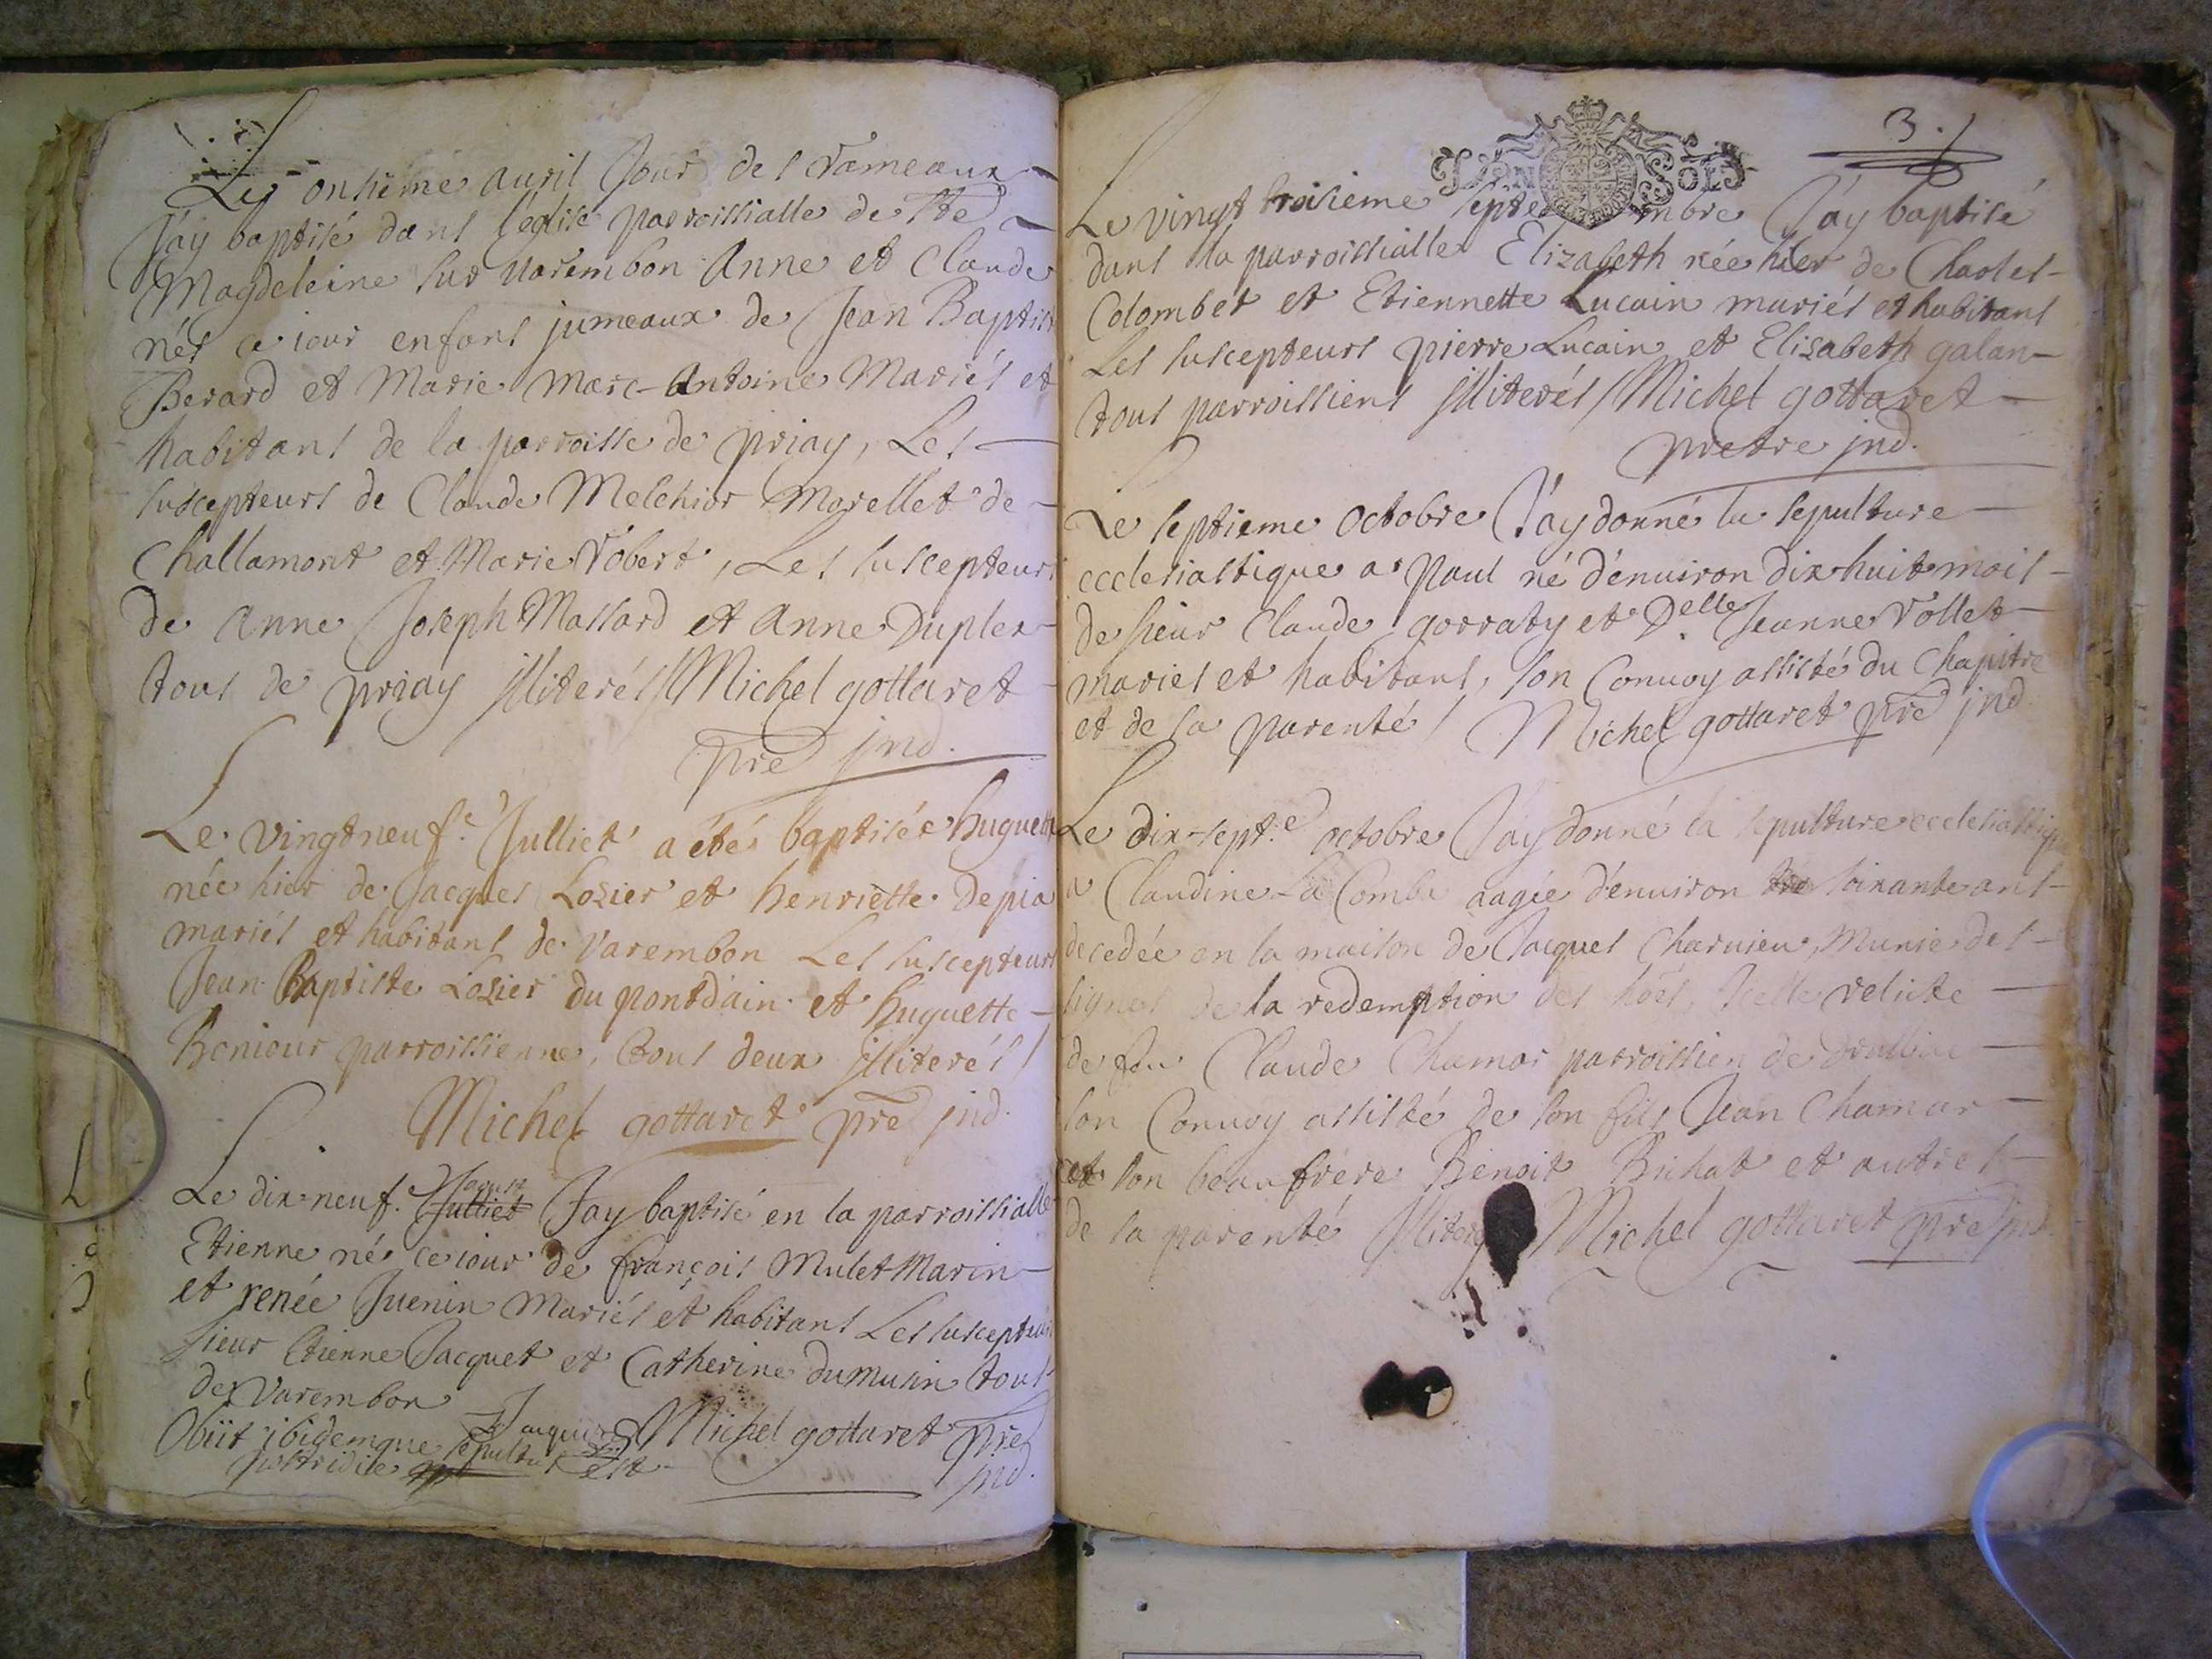 Le onsieme auril Jour des rameaux
J'ay baptisé dans l'eglise parroissialle de Ste
Magdeleine sur Varembon Anne et Claude
nés ce iour enfans jumeaux de Jean Baptiste
Berard et Marie Marc-Antoine Mariés et
habitans de la parroisse de priay, Les
suscepteurs de Claude Melchior Morellet de
Challamont et Marie Robert, Les suscepteurs
de Anne Joseph Massard et Anne Duplex
tous de priay jlliterés / Michel gottaret
pre jnd.
Le vingtneuf.e Julliet a étés baptisée huguette
née hier de Jacques Losier et henriette Depia
mariés et habitans de Varembon Les suscepteurs
Jean Baptiste Losier du pontdain et huguette
Boniour parroissienne, tous deux jlliterés /
Michel gottaret pre jnd.
Le dix-neuf. Julliet Jay baptisé en la parroissialle
Etienne né ce iour de françois Mulet Marin
et renée Juenin Mariés et habitans Les suscepteurs
sieur Etienne Jacquet et Catherine dumusin tous
de Varembon
Michel gottaret pre
Obiit ibidemque sepultus est
postridie
jnd.
3.
SOLS
Le vingt troisieme septembre J'ay baptisé
dans la parroissialle Elizabeth née hier de Charles
Colombet et Etiennette Lucain mariés et habitans
Les suscepteurs pierre Lucain et Elisabeth galan
tous parroissiens jlliterés / Michel gottaret
pretre jnd.
Le septieme octobre J'ay donné la sepulture
ecclesiastique a paul né d'enuiron dix huit mois
de sieur Claude gorraty et Delle Jeanne Vollet
mariés et habitans, son Conuoy assisté du Chapitre
et de sa parenté / Michel gottaret pre jnd
Le dix-sept.e octobre J'ay donné la sepulture ecclesiastiq
a Claudine La Combe aagée d'enuiron soixante ans
decedée en la maison de Jacques Charuieu, Munie des
signes de la redemption des hoes, Icelle relicte
de feu Claude Chamar parroissien de
son Conuoy assisté de son fils Jean Chamar
et son beaufrere Benoit Bichat et autres
de sa parenté Michel gottaret pre jnd.